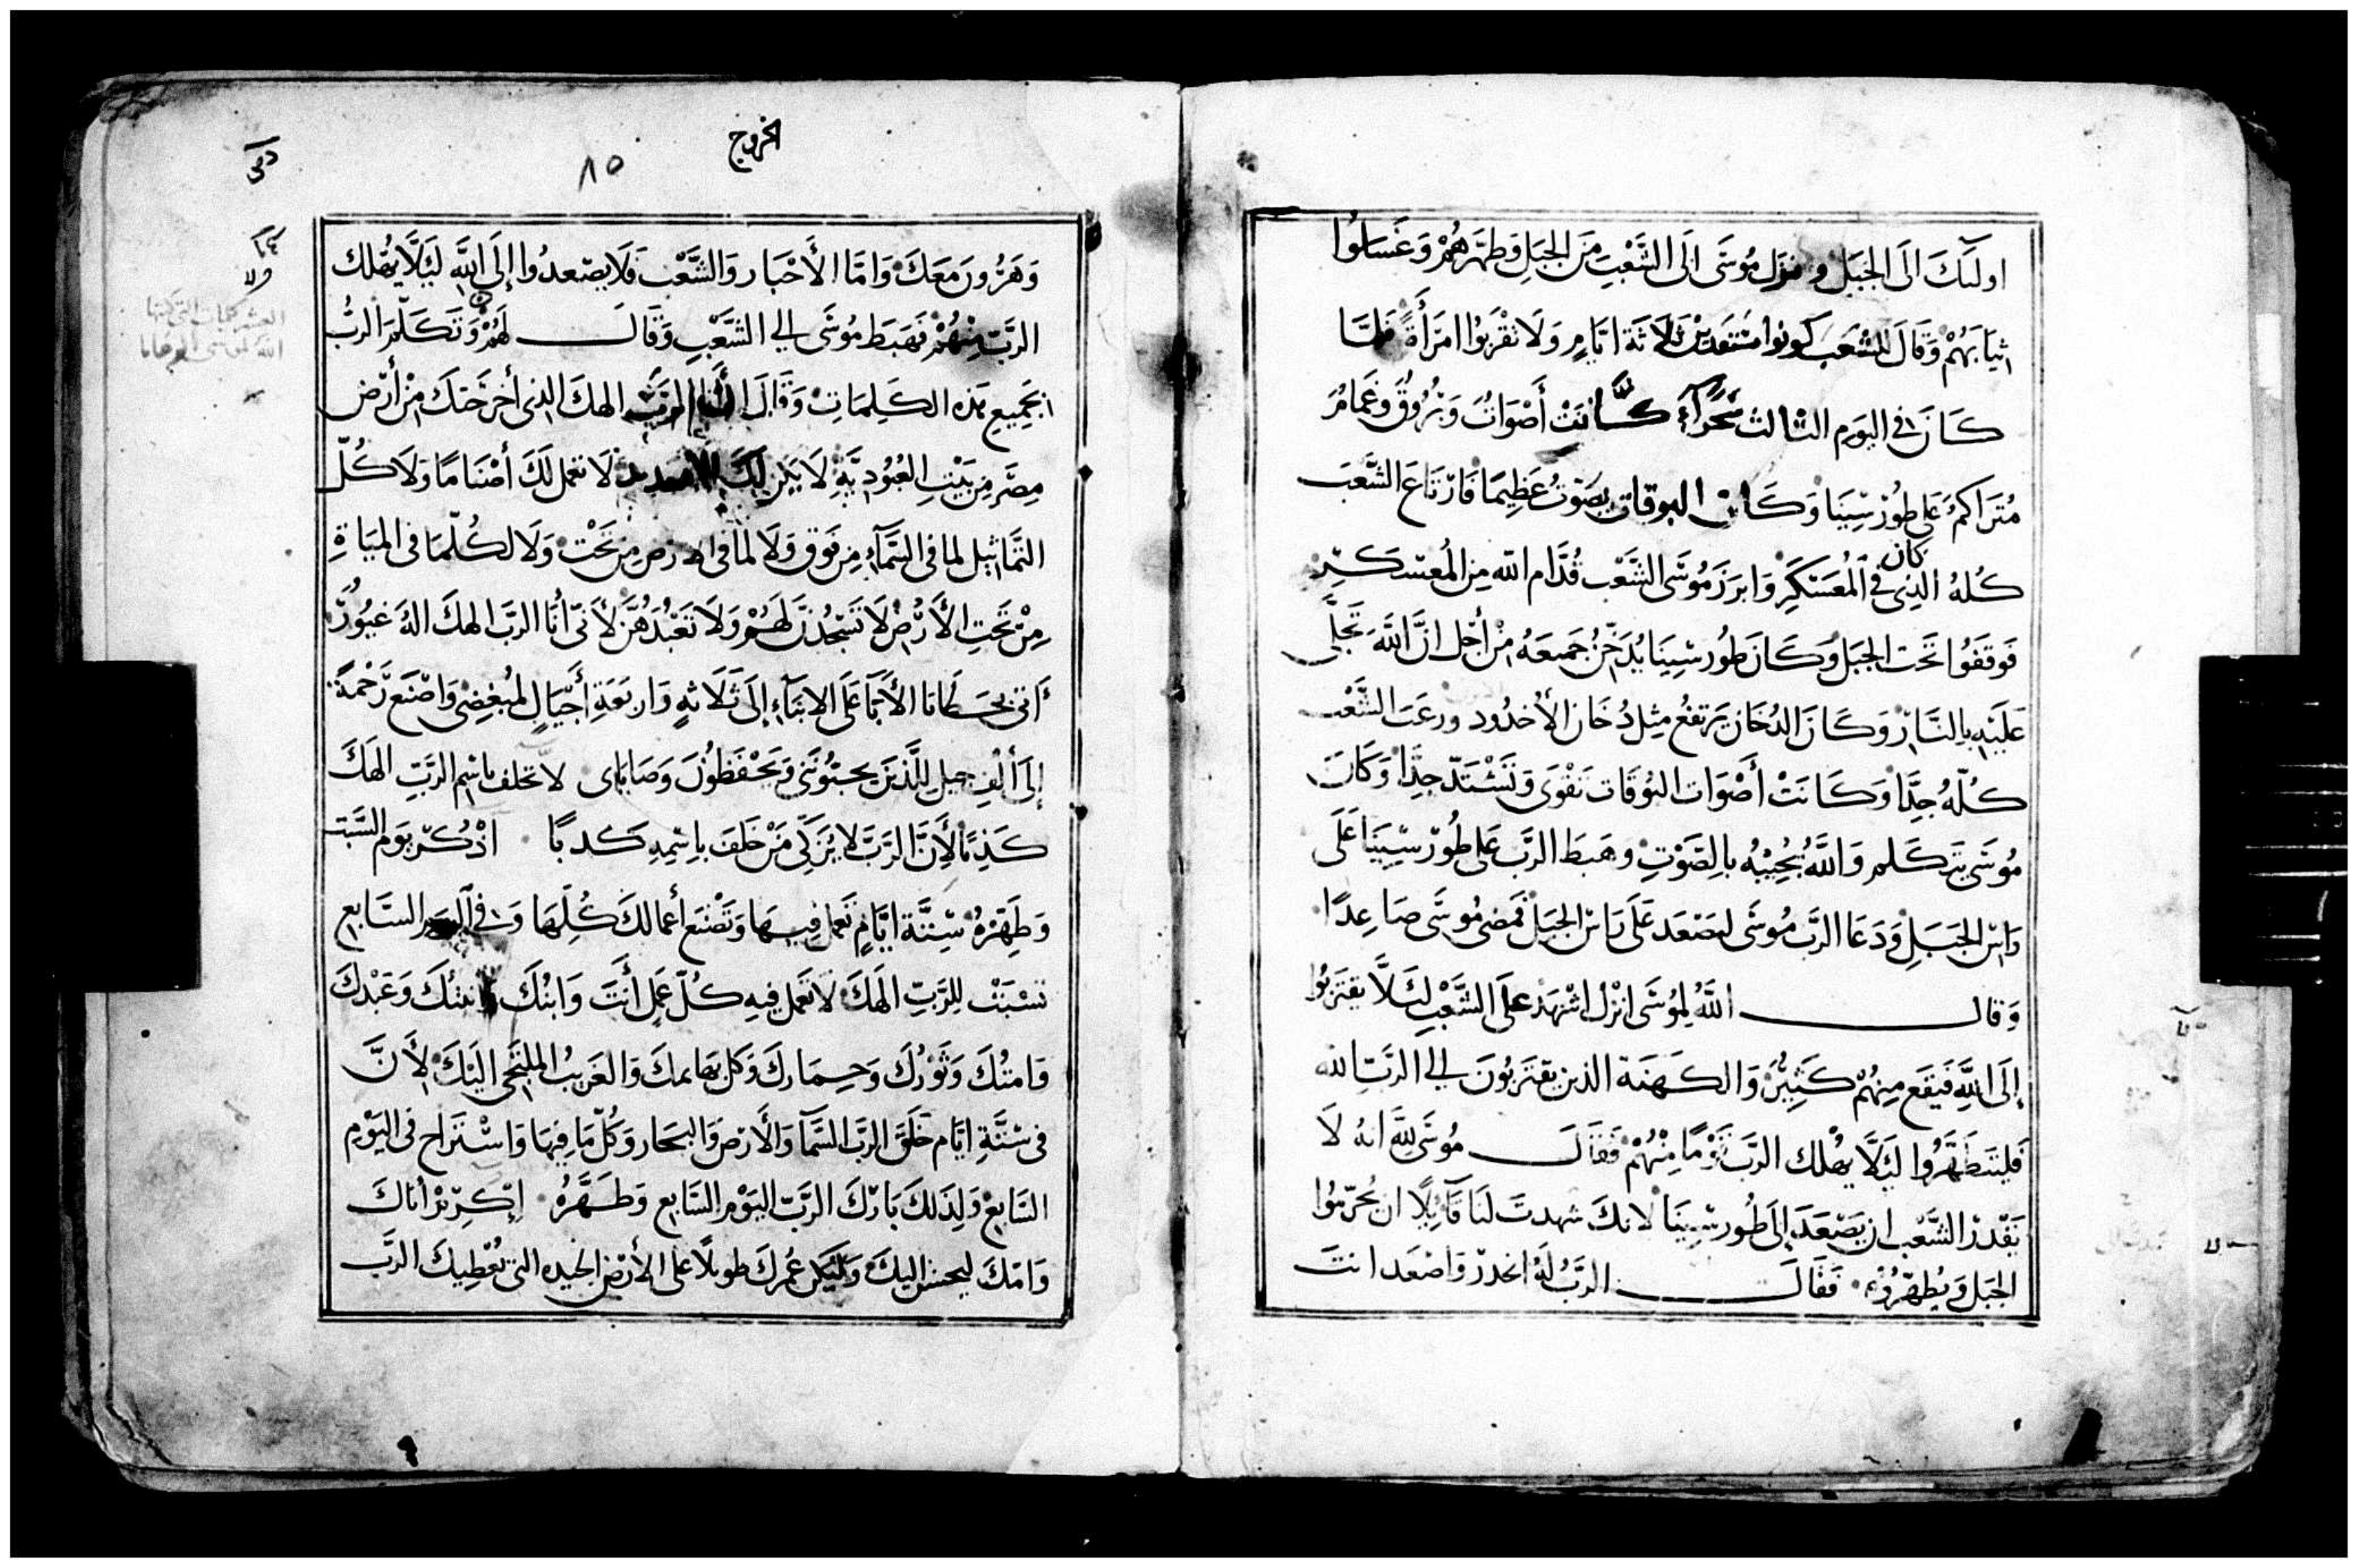 اولىك الَى الجَبَل ونزل مُوسَى الَى الشَّعْبِ مِنَ الجَبَلِ وَطهَّرَهُمْ وَغَسَلُوا
ثيَابَهُمْ وَقَالَ للشعَب كونوا مستعدين ثَلَاثَة ايَّامٍ وَلَا تقْرَبُوا امرَأَةً فلمَّا
كَانَ فى اليَوم الثالث سَحَرًا كَانَتْ أَصْوَاتٌ وَبُرُوقٌ وَغمَامٌ
مُتَرَاكمٌ عَلى طُورْ سِيْنَا وَكَان البوقات بصَوْتٌ عَظِيمَا فَارْتَاعَ الشَّعَب
كُلهُ الذى كان فى المُعَسْكَرِ وَابرَزَ مُوسَى الشَّعْب قُدَّام الله مِن المُعسْكَرِ
فوقَفُوا تَحَت الجبَل وَكَانَ طُور سِينَا يُدَخِّنُ جَمِيعَهُ مْن أَجْل انَّ اللهَ تَجَلَّى
عَلَيْهِ بالنَّارْ وَكَانَ الدُخَان يَرتفعُ مِثل دُخَان الأخدُود ورعَبَ الشَّعْب
كُلّهُ جِدًّا وَكَانَتْ أَصْوَات البُوقَات تَقْوَى وَتَشْتَدّ جِدًّا وَكَانَ
مُوسَى يتَكَلم وَاللهُ يُجِيْبُهُ بالصَّوْتِ وهَبطَ الربَّ عَلى طُورْ سِيْنَا عَلَى
رَاس الجَبَلِ وَدَعَا الربَّ مُوسَى ليَصْعَد عَلَى رَاس الجبَل فَمَضى مُوسَى صَاعِدًا
وَقالَ اللهُ لِمُوسَى انزل اشْهَدْ على الشَّعْب لئَلَّا يقتَربُوا
إلَى اللهِ فَيقَع مِنهُمْ كَثِيرٌ وَالكَهَنَة الذين يقتَرَبُونَ الى الربّ الله
فَليتَطَهَّرُوا ليَلَّا يهْلك الربّ قَوْمًا مِنْهُمْ فَقَالَ مُوسَى للهَّ انهُ لَا
يَقْدرْ الشَّعْب ان يَصْعَدَ إلَى طُور سِينَا لانكَ شهدتَ لنَا قَائِلًا ان يُحرّمُوا
الجَبَل وَيُطهّرُوْهُ فَقَالَ الربُّ لَهُ انحدرْ وَاصْعَد انتَ
الخروج
٨٥
وَهَرُونَ مَعَكَ وَامَّا الأَحْبَار وَالشَّعْب فَلَا يصْعدُوا إلى اللهِ ليَلَّا يُهْلك
الربّ مِنْهُمْ فَهَبَطَ مُوسَى الى الشَّعْبِ وَقَالَ لَهُمْ وَتَكَلَّمَ الربُّ
بجَمِيعِ هَذه الكَلِمَاتِ وَقَالَ انَا الربّ الهكَ الذى أخرَجتَكَ مِنْ أَرْض
مِصْر مِن بَيْتِ العُبُودِيَّةِ لَا يَكن لَكَ لَا تعمل لَكَ أصْنَامًا وَلَا كُلّ
التَّمَاثِيل لما فى السَّمَآء مِن فَوق وَلَا لمَا فى الارض مِن تَحْت وَلَا لكُلّمَا فى المِيَاةِ
مِنْ تَحَتِ الأَرْض لَا تَسْجُدَنَّ لَهُمْ وَلَا تَعَبُدَهُنَّ لأَنّى أَنَا الربّ الهكَ الهٌ غيُورٌ
أتى بخَطَايا الأَبَآ عَلَى الابنَآء إلَى ثَلَاثهٍ وَاربَعَةِ أَجْيَالٍ لمُبغضِى وَاصْنَع رَحْمَةً
إلى أَلْفِ جيل للَّذينَ يحبّونَنى وَيَحْفَظُوْنَ وَصَايَاى لا تحلف باسْم الربّ الهَكَ
كَذِبًا لأنَّ الربَّ لا يُزَكِّى مَنْ حَلَفَ باسْمِهِ كَذبًا اذْكُرْ يَوم السَّبت
وَطَهّرهُ سِتَّة ايَّامٍ تَعمَل فِيهَا وَتَصْنَع أعمالكَ كُلِّهَا وَفى اليَوم السَّابع
تسْبَتْ للربِّ الَهكَ لَا تعَمل فيهِ كُلّ عَمل أنتَ وَابنُكَ وابنتكَ وَعَبْدكَ
وَامَتُكَ وَثَوْرُكَ وَحِمَارك وَكل بهَايمكَ وَالغَرِيبُ الملتجى اليْكَ لأَنَّ
فى سْتَّةِ ايَّام خَلقَ الربّ السَّمآ وَالأَرضَ وَالبحَار وَكُلّ مَا فِيهَا وَاسْتَراح فى اليَوْم
السَّابعْ وَلِذَلكَ بَاركَ الربّ اليَوْم السَّابع وَطَهَّرهُ اكرِمْ أَبَاكَ
وَامّكَ ليحسَن اليكَ وَليَكن عُمركَ طويلًا على الأَرْض الجيده التى يُعْطِيكَ الربّ